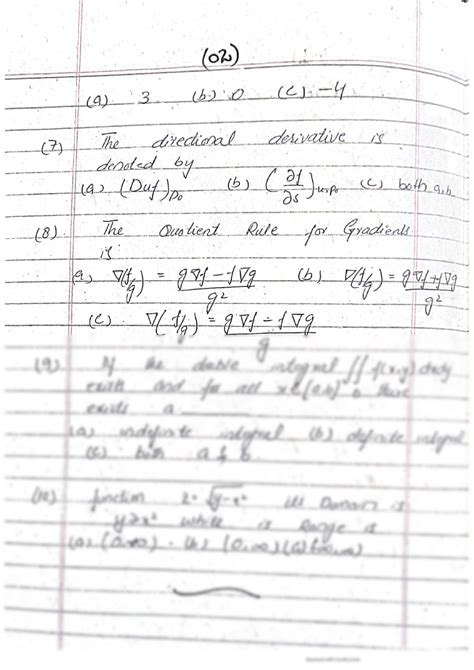 (02)
(a) 3 (b) 0 (c) -4
(7) The directional derivative is
denoted by
(a) (Duf)P₀ (b) (∂f/∂s)u,P₀ (c) both a,b
(8) The Quotient Rule for Gradients
is
(a) ∇(f/g) = (g∇f - f∇g)/g² (b) ∇(f/g) = (g∇f + f∇g)/g²
(c) ∇(f/g) = (g∇f - f∇g)/g
(9) If the double integral ∬ f(x,y) dxdy
exists and for all x ∈ [a,b] there
exists a ______
(a) indefinite integral (b) definite integral
(c) both a & b
(10) function z = √(y-x²) its Domain is
y ≥ x² while is Range is
(a) (b) (0,∞) (c)